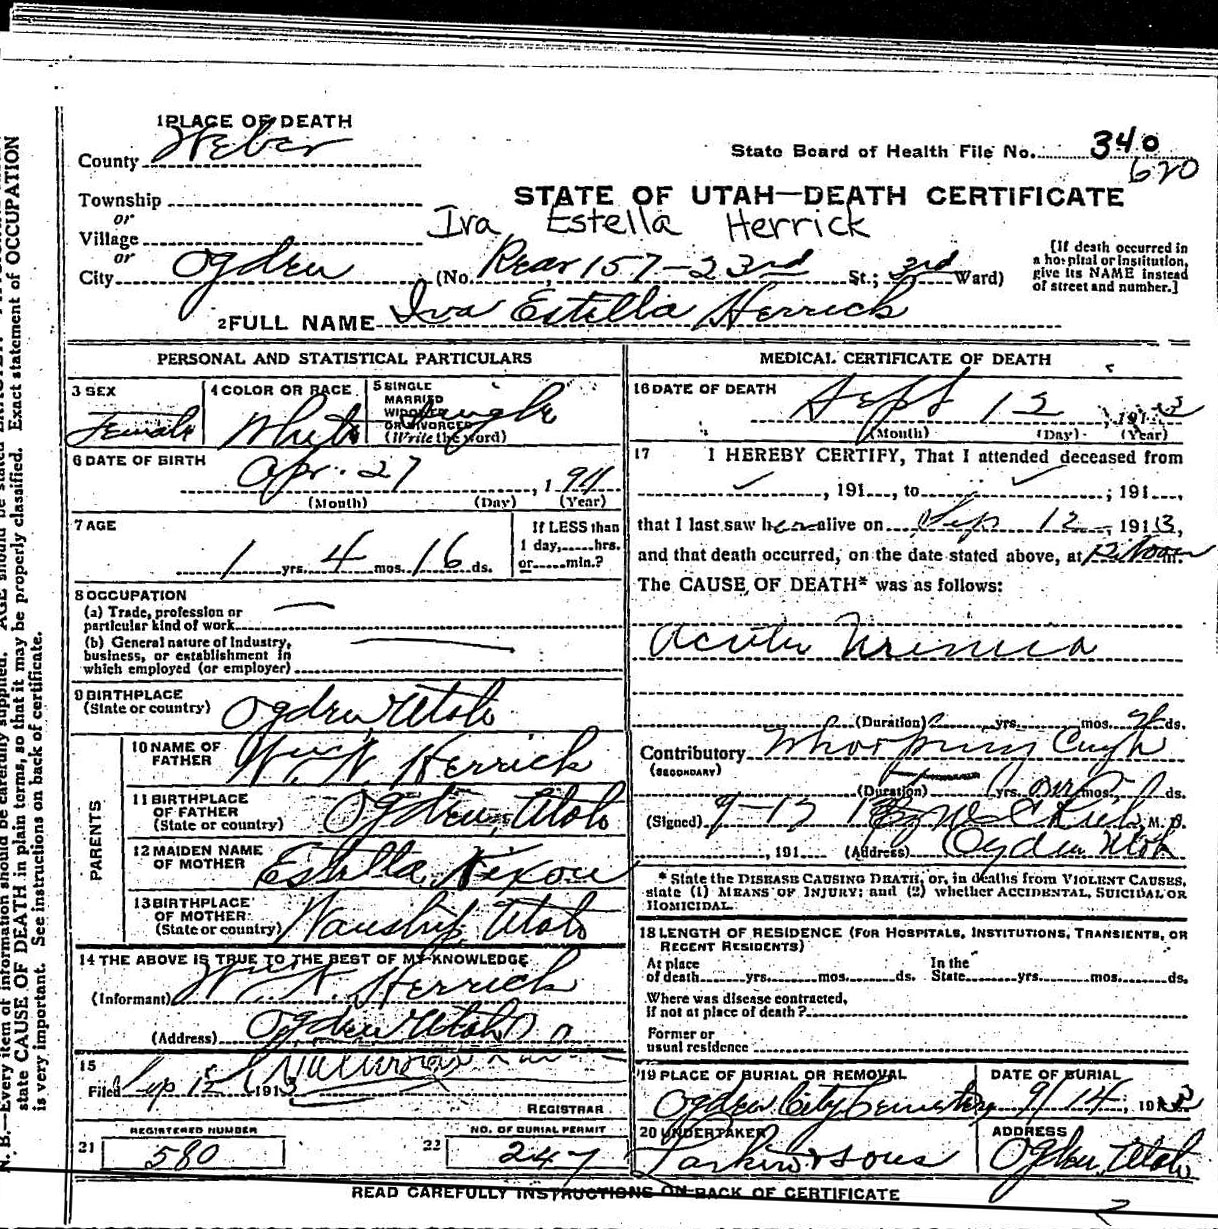 N. B.—Every item of information should be carefully supplied. AGE should be stated
state CAUSE OF DEATH in plain terms, so that it may be properly classified. Exact statement of OCCUPATION
is very important. See instructions on back of certificate.
1 PLACE OF DEATH
County Weber
State Board of Health File No. 340
620
Township
or
Village
or
City Ogden
STATE OF UTAH—DEATH CERTIFICATE
Iva Estella Herrick
(No. Rear 157-23rd St.; 3rd Ward)
[If death occurred in
a hospital or institution,
give its NAME instead
of street and number.]
2 FULL NAME Iva Estella Herrick
PERSONAL AND STATISTICAL PARTICULARS
3 SEX
Female
4 COLOR OR RACE
White
5 SINGLE
MARRIED
WIDOWED
OR DIVORCED
(Write the word)
Single
6 DATE OF BIRTH
Apr. 27, 1911
(Month) (Day) (Year)
7 AGE
1 yrs. 4 mos. 16 ds.
If LESS than
1 day, hrs.
or min.?
8 OCCUPATION
(a) Trade, profession or
particular kind of work
(b) General nature of Industry,
business, or establishment in
which employed (or employer)
9 BIRTHPLACE
(State or country) Ogden Utah
PARENTS
10 NAME OF
FATHER Wm. N. Herrick
11 BIRTHPLACE
OF FATHER
(State or country) Ogden, Utah
12 MAIDEN NAME
OF MOTHER Estella Nixon
13 BIRTHPLACE
OF MOTHER
(State or country) Wanship, Utah
14 THE ABOVE IS TRUE TO THE BEST OF MY KNOWLEDGE
(Informant) Wm. N. Herrick
(Address) Ogden Utah
15
Filed Sep 15 1913
REGISTRAR
REGISTERED NUMBER
21 580
NO. OF BURIAL PERMIT
22 247
MEDICAL CERTIFICATE OF DEATH
16 DATE OF DEATH
Sept 12, 1913
(Month) (Day) (Year)
17 I HEREBY CERTIFY, That I attended deceased from
, 191 , to ; 191 ,
that I last saw her alive on Sep 12, 1913,
and that death occurred, on the date stated above, at 12 Noon m.
The CAUSE OF DEATH* was as follows:
Acute Uremia
(Duration) yrs. mos. ds.
Contributory Whooping Cough
(SECONDARY)
(Duration) yrs. mos. ds.
(Signed) 9-13 M. D.
, 191 (Address) Ogden Utah
* State the DISEASE CAUSING DEATH, or, in deaths from VIOLENT CAUSES,
state (1) MEANS OF INJURY; and (2) whether ACCIDENTAL, SUICIDAL OR
HOMICIDAL.
18 LENGTH OF RESIDENCE (FOR HOSPITALS, INSTITUTIONS, TRANSIENTS, OR
RECENT RESIDENTS)
At place
of death yrs. mos. ds.
In the
State yrs. mos. ds.
Where was disease contracted,
if not at place of death?
Former or
usual residence
19 PLACE OF BURIAL OR REMOVAL
Ogden City Cemetery
DATE OF BURIAL
9/14, 1913
20 UNDERTAKER
Larkin & Sons
ADDRESS
Ogden, Utah
READ CAREFULLY INSTRUCTIONS ON BACK OF CERTIFICATE